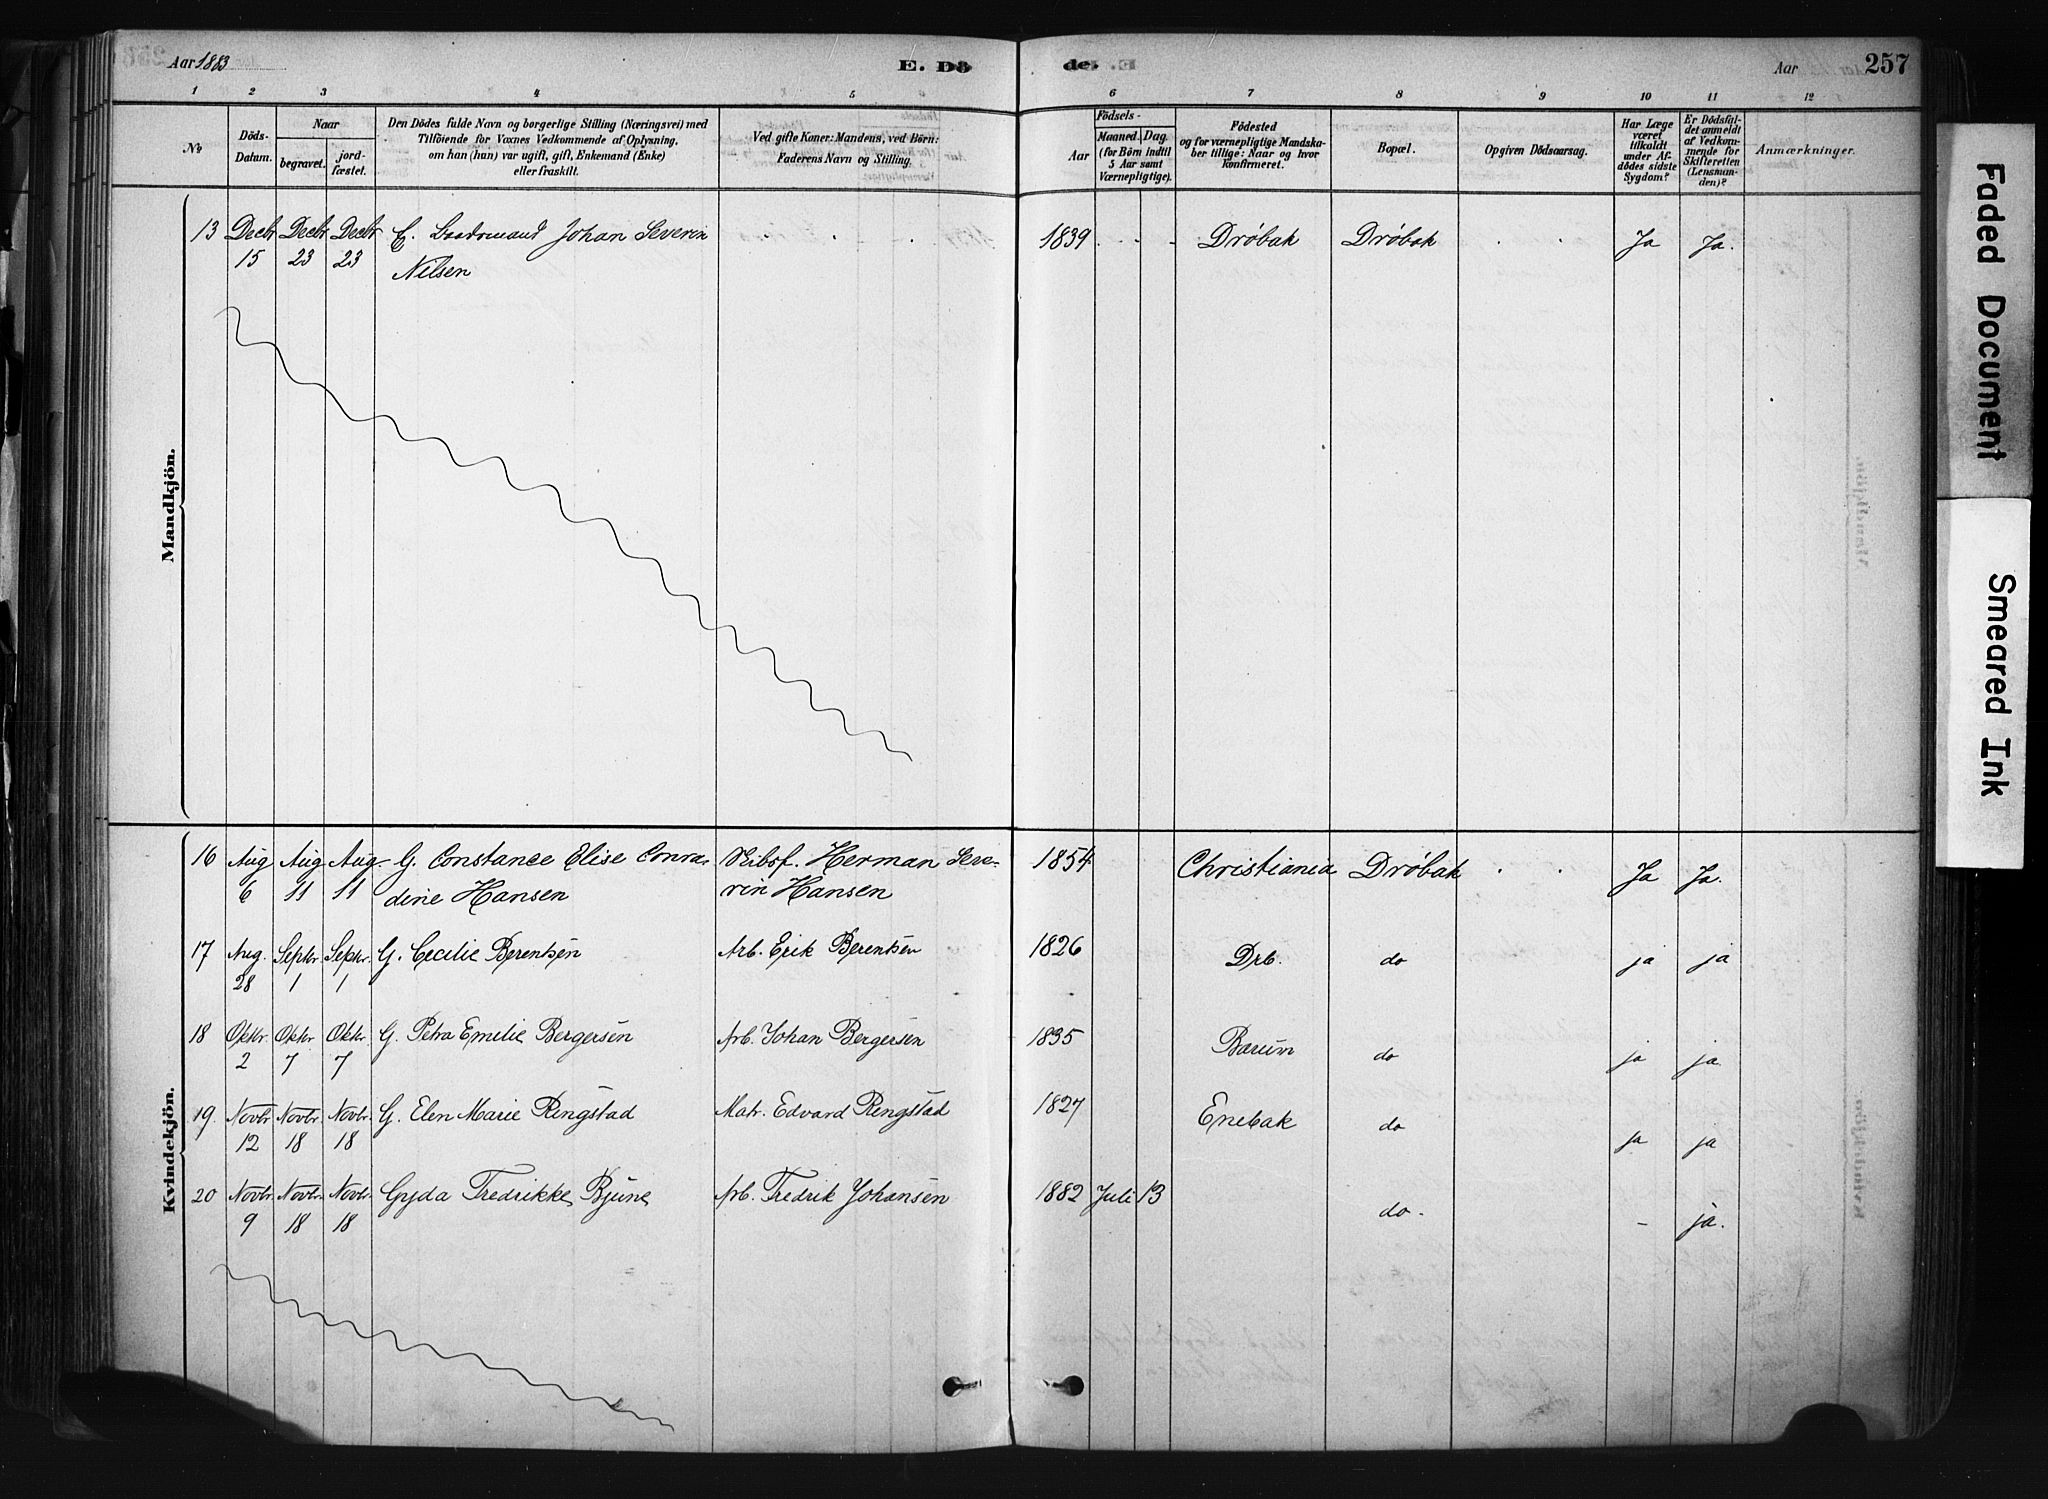 Aar 1883
E. Dö
de.
Aar
257
1 2 3 4 5 6 7 8 9 10 11 12
No
Döds-
Datum.
Naar
begravet.
jord-
fæstet.
Den Dödes fulde Navn og borgerlige Stilling (Næringsvei) med
Tilföiende for Voxnes Vedkommende af Oplysning,
om han (hun) var ugift, gift, Enkemand (Enke)
eller fraskilt.
Ved gifte Koner: Mandens, ved Börn:
Faderens Navn og Stilling.
Födsels-
Aar
Maaned. Dag.
(for Börn indtil
5 Aar samt
Værnepligtige).
Födested
og for værnepligtige Mandska-
ber tillige: Naar og hvor
konfirmeret.
Bopæl.
Opgiven Dödsaarsag.
Har Læge
været
tilkaldt
under Af-
dödes sidste
Sygdom?
Er Dödsfal-
det anmeldt
af Vedkom-
mende for
Skifteretten
(Lensman-
den)?
Anmærkninger.
Mandkjön.
13 Decbr Decbr Decbr E. Johan Severin 1839 Dröbak Dröbak Ja Ja.
15 23 23 Nilsen
Kvindekjön.
16 Aug Aug Aug. G. Constance Elise Conra- Skibsf. Herman Seve- 1854 Christiania Dröbak Ja Ja.
6 11 11 dine Hansen rin Hansen
17 Aug. Septr. Septr. G. Cecilie Berentsen Arb. Erik Berentsen 1826 Drb. do ja ja
28 1 1
18 Oktr. Oktr. Oktr. G. Petra Emilie Bergersen Arb. Johan Bergersen 1835 Barum do ja ja
2 7 7
19. Novbr. Novbr. Novbr. G. Elen Marie Rengstad Matr. Edvard Rengstad 1827 Enebak do ja ja
12 18 18
20 Novbr. Novbr. Novbr. Gyda Fredrikke Bjune Arb. Fredrik Johansen 1882 Juli 13 do. - ja.
9 18 18
Faded Document
Smeared Ink